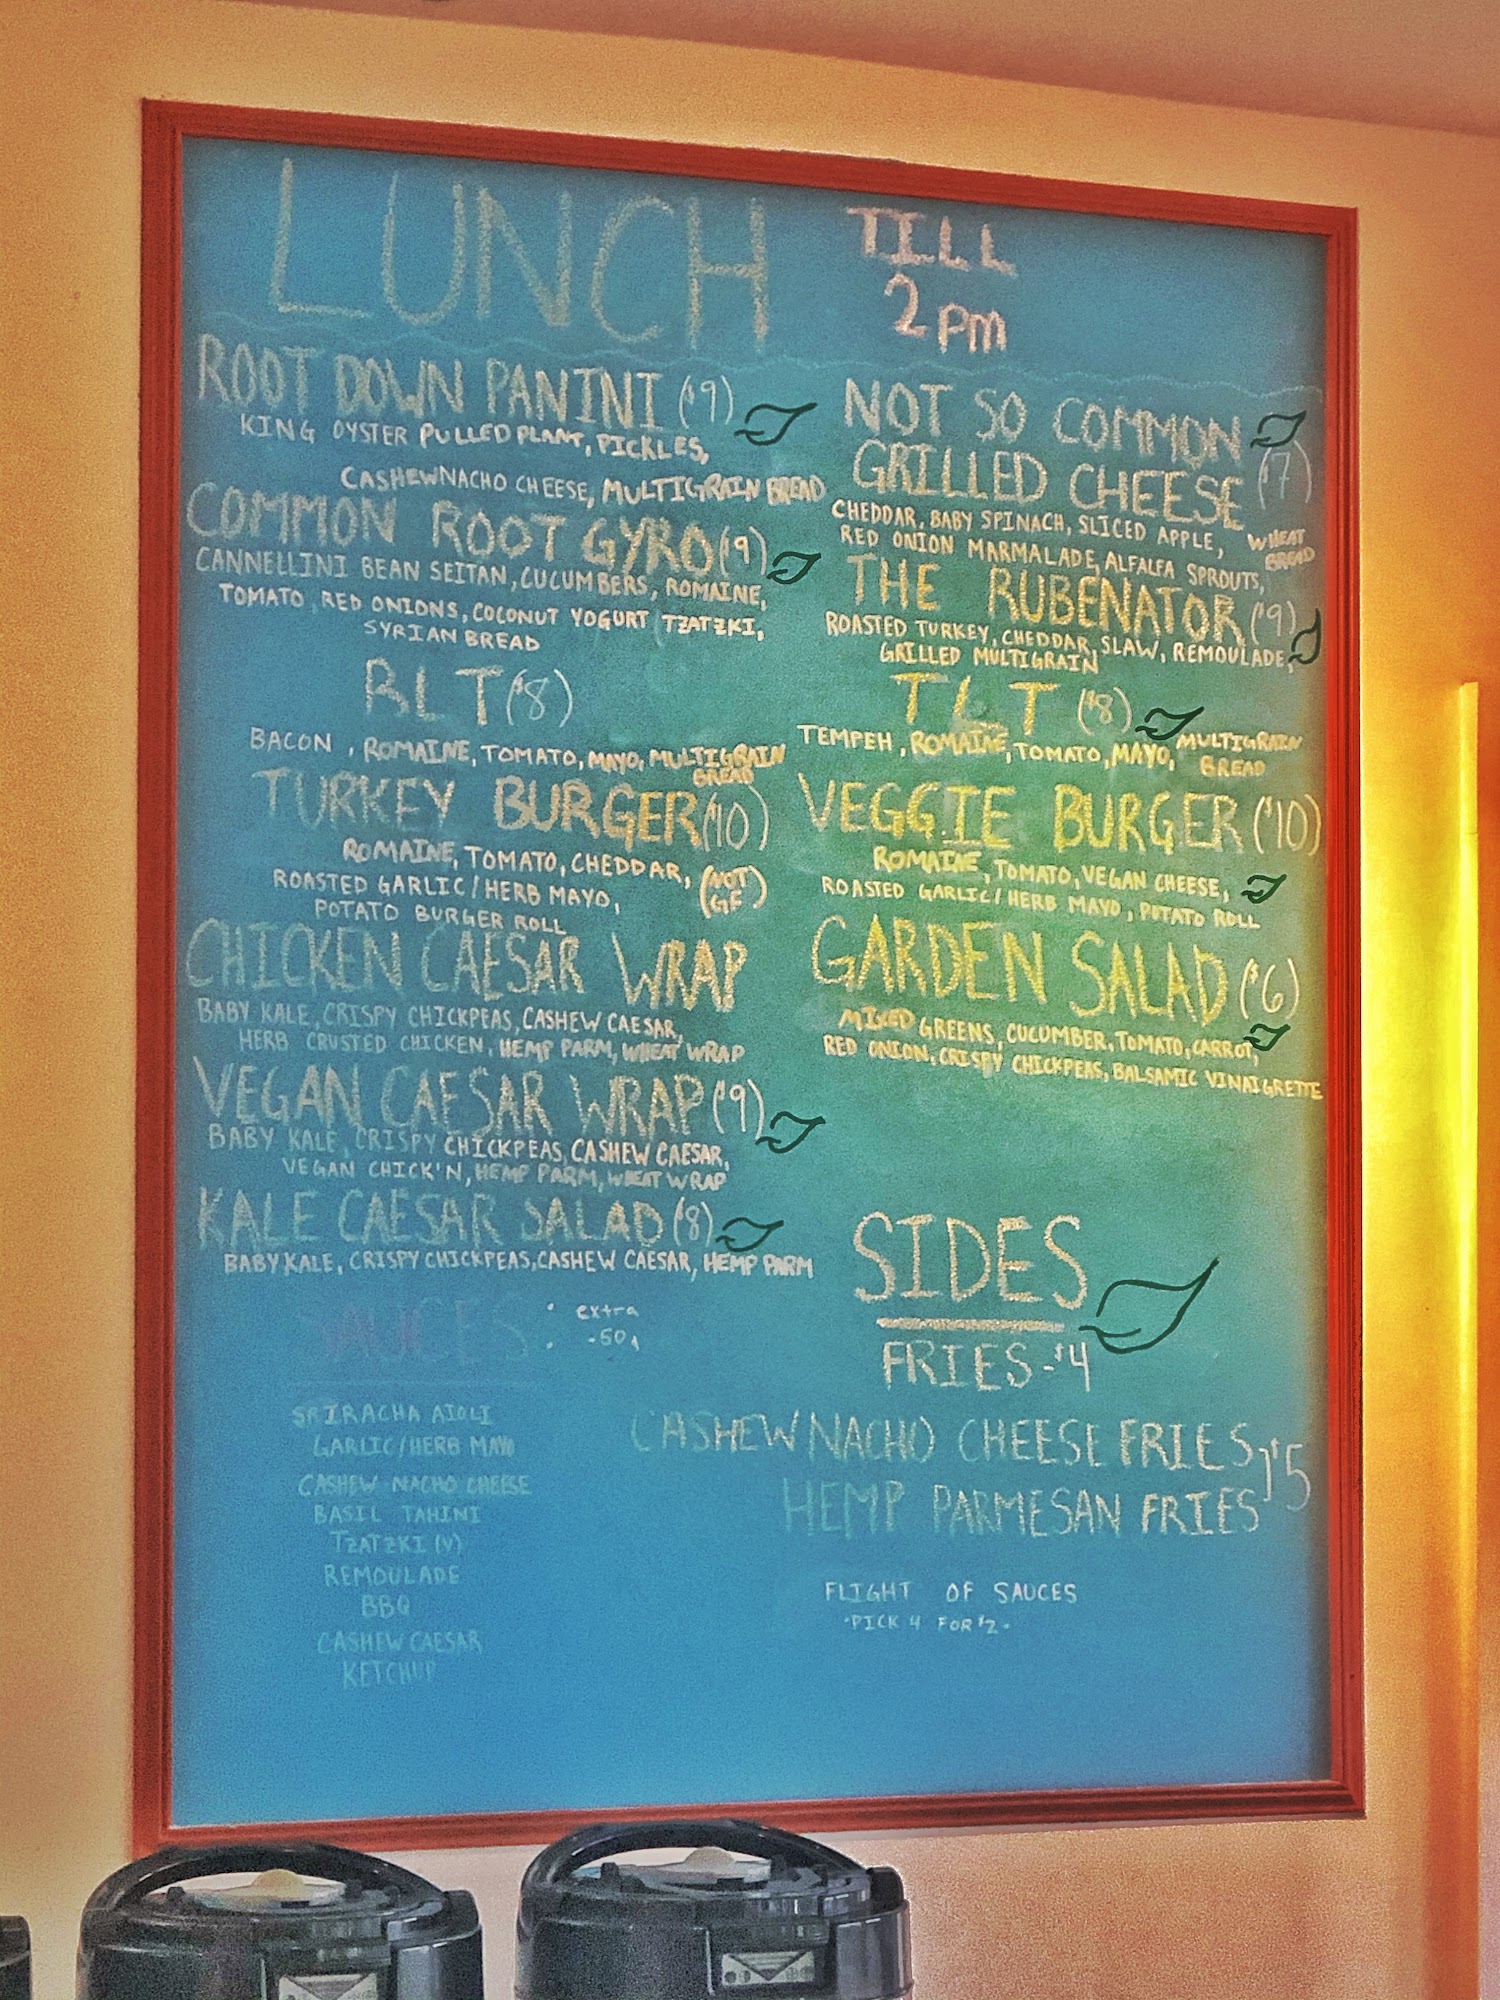 LUNCH
TILL
2 PM
ROOT DOWN PANINI ($9)
KING OYSTER PULLED PLANT, PICKLES,
CASHEW NACHO CHEESE, MULTIGRAIN BREAD
COMMON ROOT GYRO ($9)
CANNELLINI BEAN SEITAN, CUCUMBERS, ROMAINE,
TOMATO, RED ONIONS, COCONUT YOGURT TZATZKI,
SYRIAN BREAD
BLT ($8)
BACON, ROMAINE, TOMATO, MAYO, MULTIGRAIN
BREAD
TURKEY BURGER ($10)
ROMAINE, TOMATO, CHEDDAR, (NOT
ROASTED GARLIC/HERB MAYO, GF)
POTATO BURGER ROLL
CHICKEN CAESAR WRAP
BABY KALE, CRISPY CHICKPEAS, CASHEW CAESAR,
HERB CRUSTED CHICKEN, HEMP PARM, WHEAT WRAP
VEGAN CAESAR WRAP ($9)
BABY KALE, CRISPY CHICKPEAS, CASHEW CAESAR,
VEGAN CHICK'N, HEMP PARM, WHEAT WRAP
KALE CAESAR SALAD ($8)
BABY KALE, CRISPY CHICKPEAS, CASHEW CAESAR, HEMP PARM
SAUCES: extra
.50¢
SRIRACHA AIOLI
GARLIC/HERB MAYO
CASHEW NACHO CHEESE
BASIL TAHINI
TZATZKI (V)
REMOULADE
BBQ
CASHEW CAESAR
KETCHUP
NOT SO COMMON
GRILLED CHEESE ($7)
CHEDDAR, BABY SPINACH, SLICED APPLE,
RED ONION MARMALADE, ALFALFA SPROUTS, WHEAT
BREAD
THE RUBENATOR ($9)
ROASTED TURKEY, CHEDDAR, SLAW, REMOULADE,
GRILLED MULTIGRAIN
TLT ($8)
TEMPEH, ROMAINE, TOMATO, MAYO, MULTIGRAIN
BREAD
VEGGIE BURGER ($10)
ROMAINE, TOMATO, VEGAN CHEESE,
ROASTED GARLIC/HERB MAYO, POTATO ROLL
GARDEN SALAD ($6)
MIXED GREENS, CUCUMBER, TOMATO, CARROT,
RED ONION, CRISPY CHICKPEAS, BALSAMIC VINAIGRETTE
SIDES
FRIES-$4
CASHEW NACHO CHEESE FRIES
HEMP PARMESAN FRIES ]$5
FLIGHT OF SAUCES
·PICK 4 FOR $2·